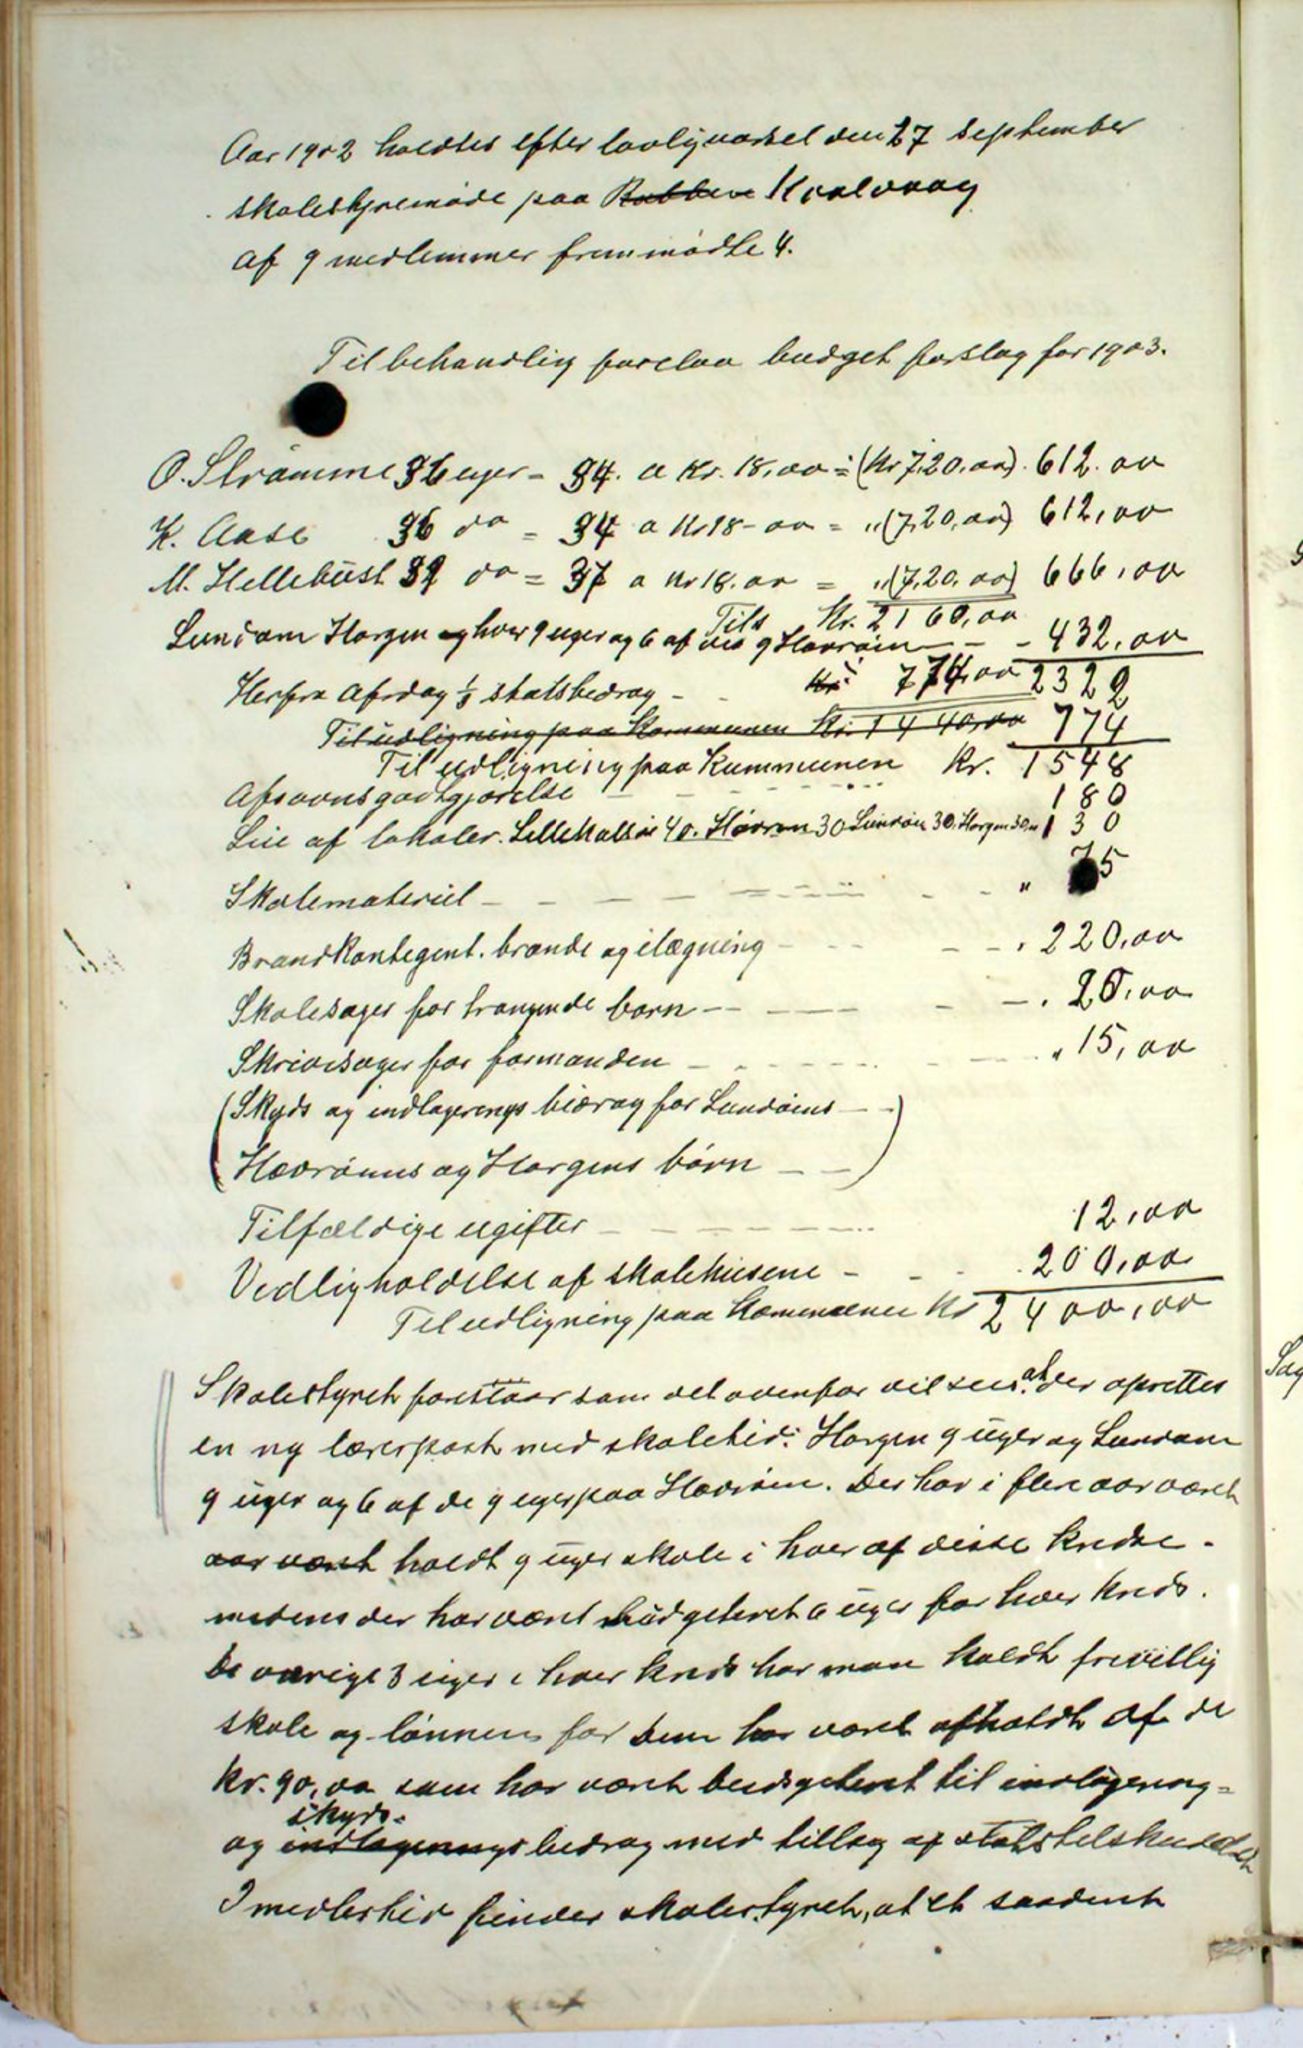 Aar 1902 holdtes efter lovlig varsel den 27 September
skolestyremøde paa Rabben Kvalvaag
af 9 medlemmer fremmødte 4.
Til behandling forelaa budget forslag for 1903.
O. Strømme 36 uger = 34. a Kr. 18,00 = (Kr 7,20,00). 612.00
K. Aase 36 do = 34 a Kr 18-00 = „ (7,20,00) 612,00
M. Hellebust 39 do = 37 a Kr 18.00 = „ (7,20.00) 666,00
Tils Kr. 2160,00
Lundøen Horgen og hver 9 uger og 6 af de 9 Havrøen - - 432,00
Herfra Afsdag 1/3 statsbedrag - Kr. 774,00 2322
Til udligning paa Kommunen Kr. 1440,00 774
Til udligning paa Kummunen Kr. 1548
Afsavnsgodtgjørelse 180
Leie af lokaler. Lille Kalsøe 40. Havrøen 30 Lundøen 30. Horgen 30„ 130
Skolemateriel „ 75
Brandkontegent. brænde og ilægning 220,00
Skolesager for trængende børn 20,00
Skrivesager for formanden „ 15,00
(Skyds og indlogerings bidrag for Lundøens
Havrøens og Horgens børn)
Tilfældige ugifter 12,00
Vedligholdelse af skolehusene 200,00
Til udligning paa Kommunen Kr 2400,00
Skolestyret forestaar som det ovenfor vil sees at der oprettes
en ny lærerpost med skoletid: Horgen 9 uger og Lundøen
9 uger og 6 af de 9 uger paa Havrøen. Der har i flere aar været
aar været holdt 9 uger skole i hver af disse kredse.
medens der har været budgeteret 6 uger for hver kreds.
De øvrige 3 uger i hver kreds har man holdt frivillig
skole og lønnen for dem har været afholdt af de
Kr. 90,00 som har været budsgetert til indlogering=
skyds.
og indlogerings bedrag med tillæg af statstilskuddet
Imedlertid finder skolestyret, at et saadent